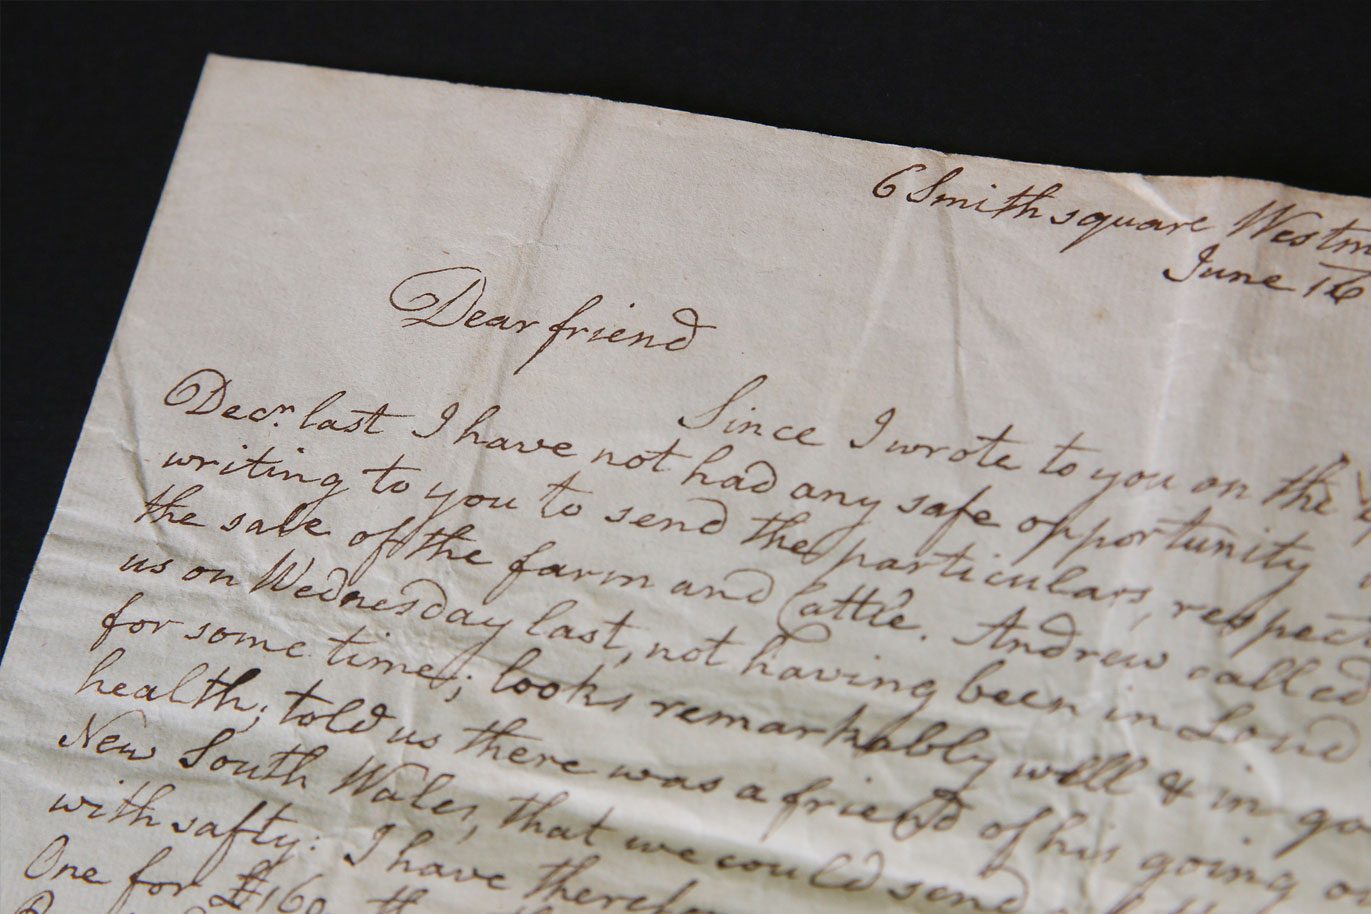 6 Smith square Westm
June 16
Dear friend
Since I wrote to you on the
Decr. last I have not had any safe opportunity
writing to you to send the particulars, respect
the sale of the farm and Cattle. Andrew called
us on Wednesday last, not having been in Lond
for some time; looks remarkably well & in go
health; told us there was a friend of his going o
New South Wales, that we could send
with safty: I have therefor
One for £160